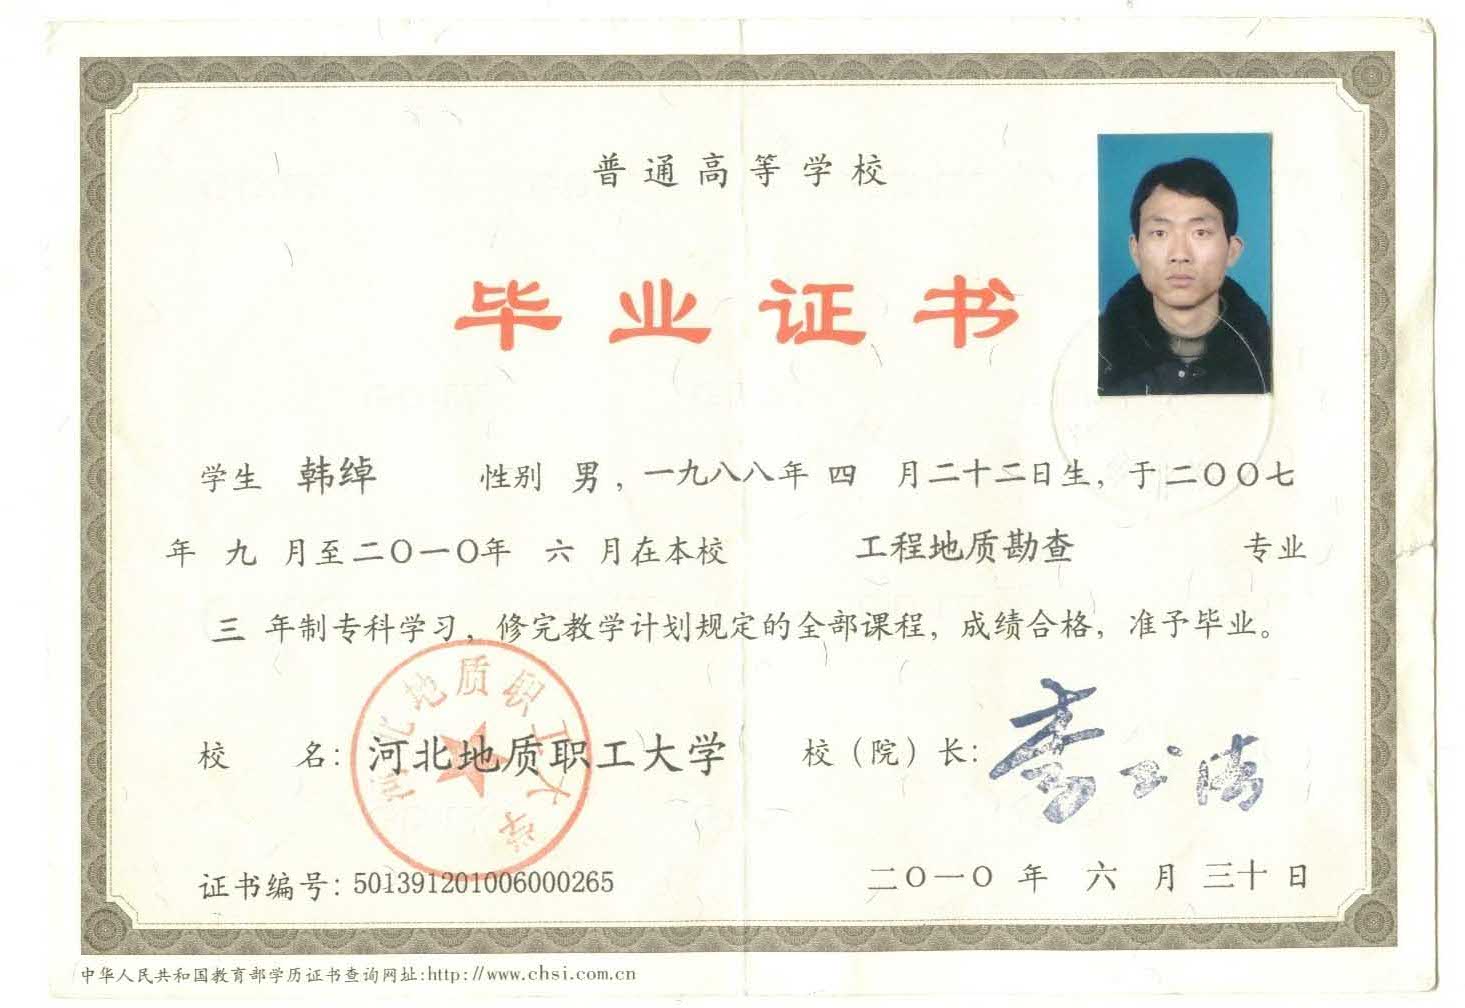 普通高等学校
毕业证书
学生 韩绰 性别 男，一九八八年 四 月二十二日生，于二〇〇七
年 九 月至二〇一〇年 六 月在本校 工程地质勘查 专业
三 年制专科学习，修完教学计划规定的全部课程，成绩合格，准予毕业。
河北地质职工大学
校 名：河北地质职工大学 校（院）长：
证书编号：501391201006000265 二〇一〇 年 六 月 三十 日
中华人民共和国教育部学历证书查询网址:http://www.chsi.com.cn